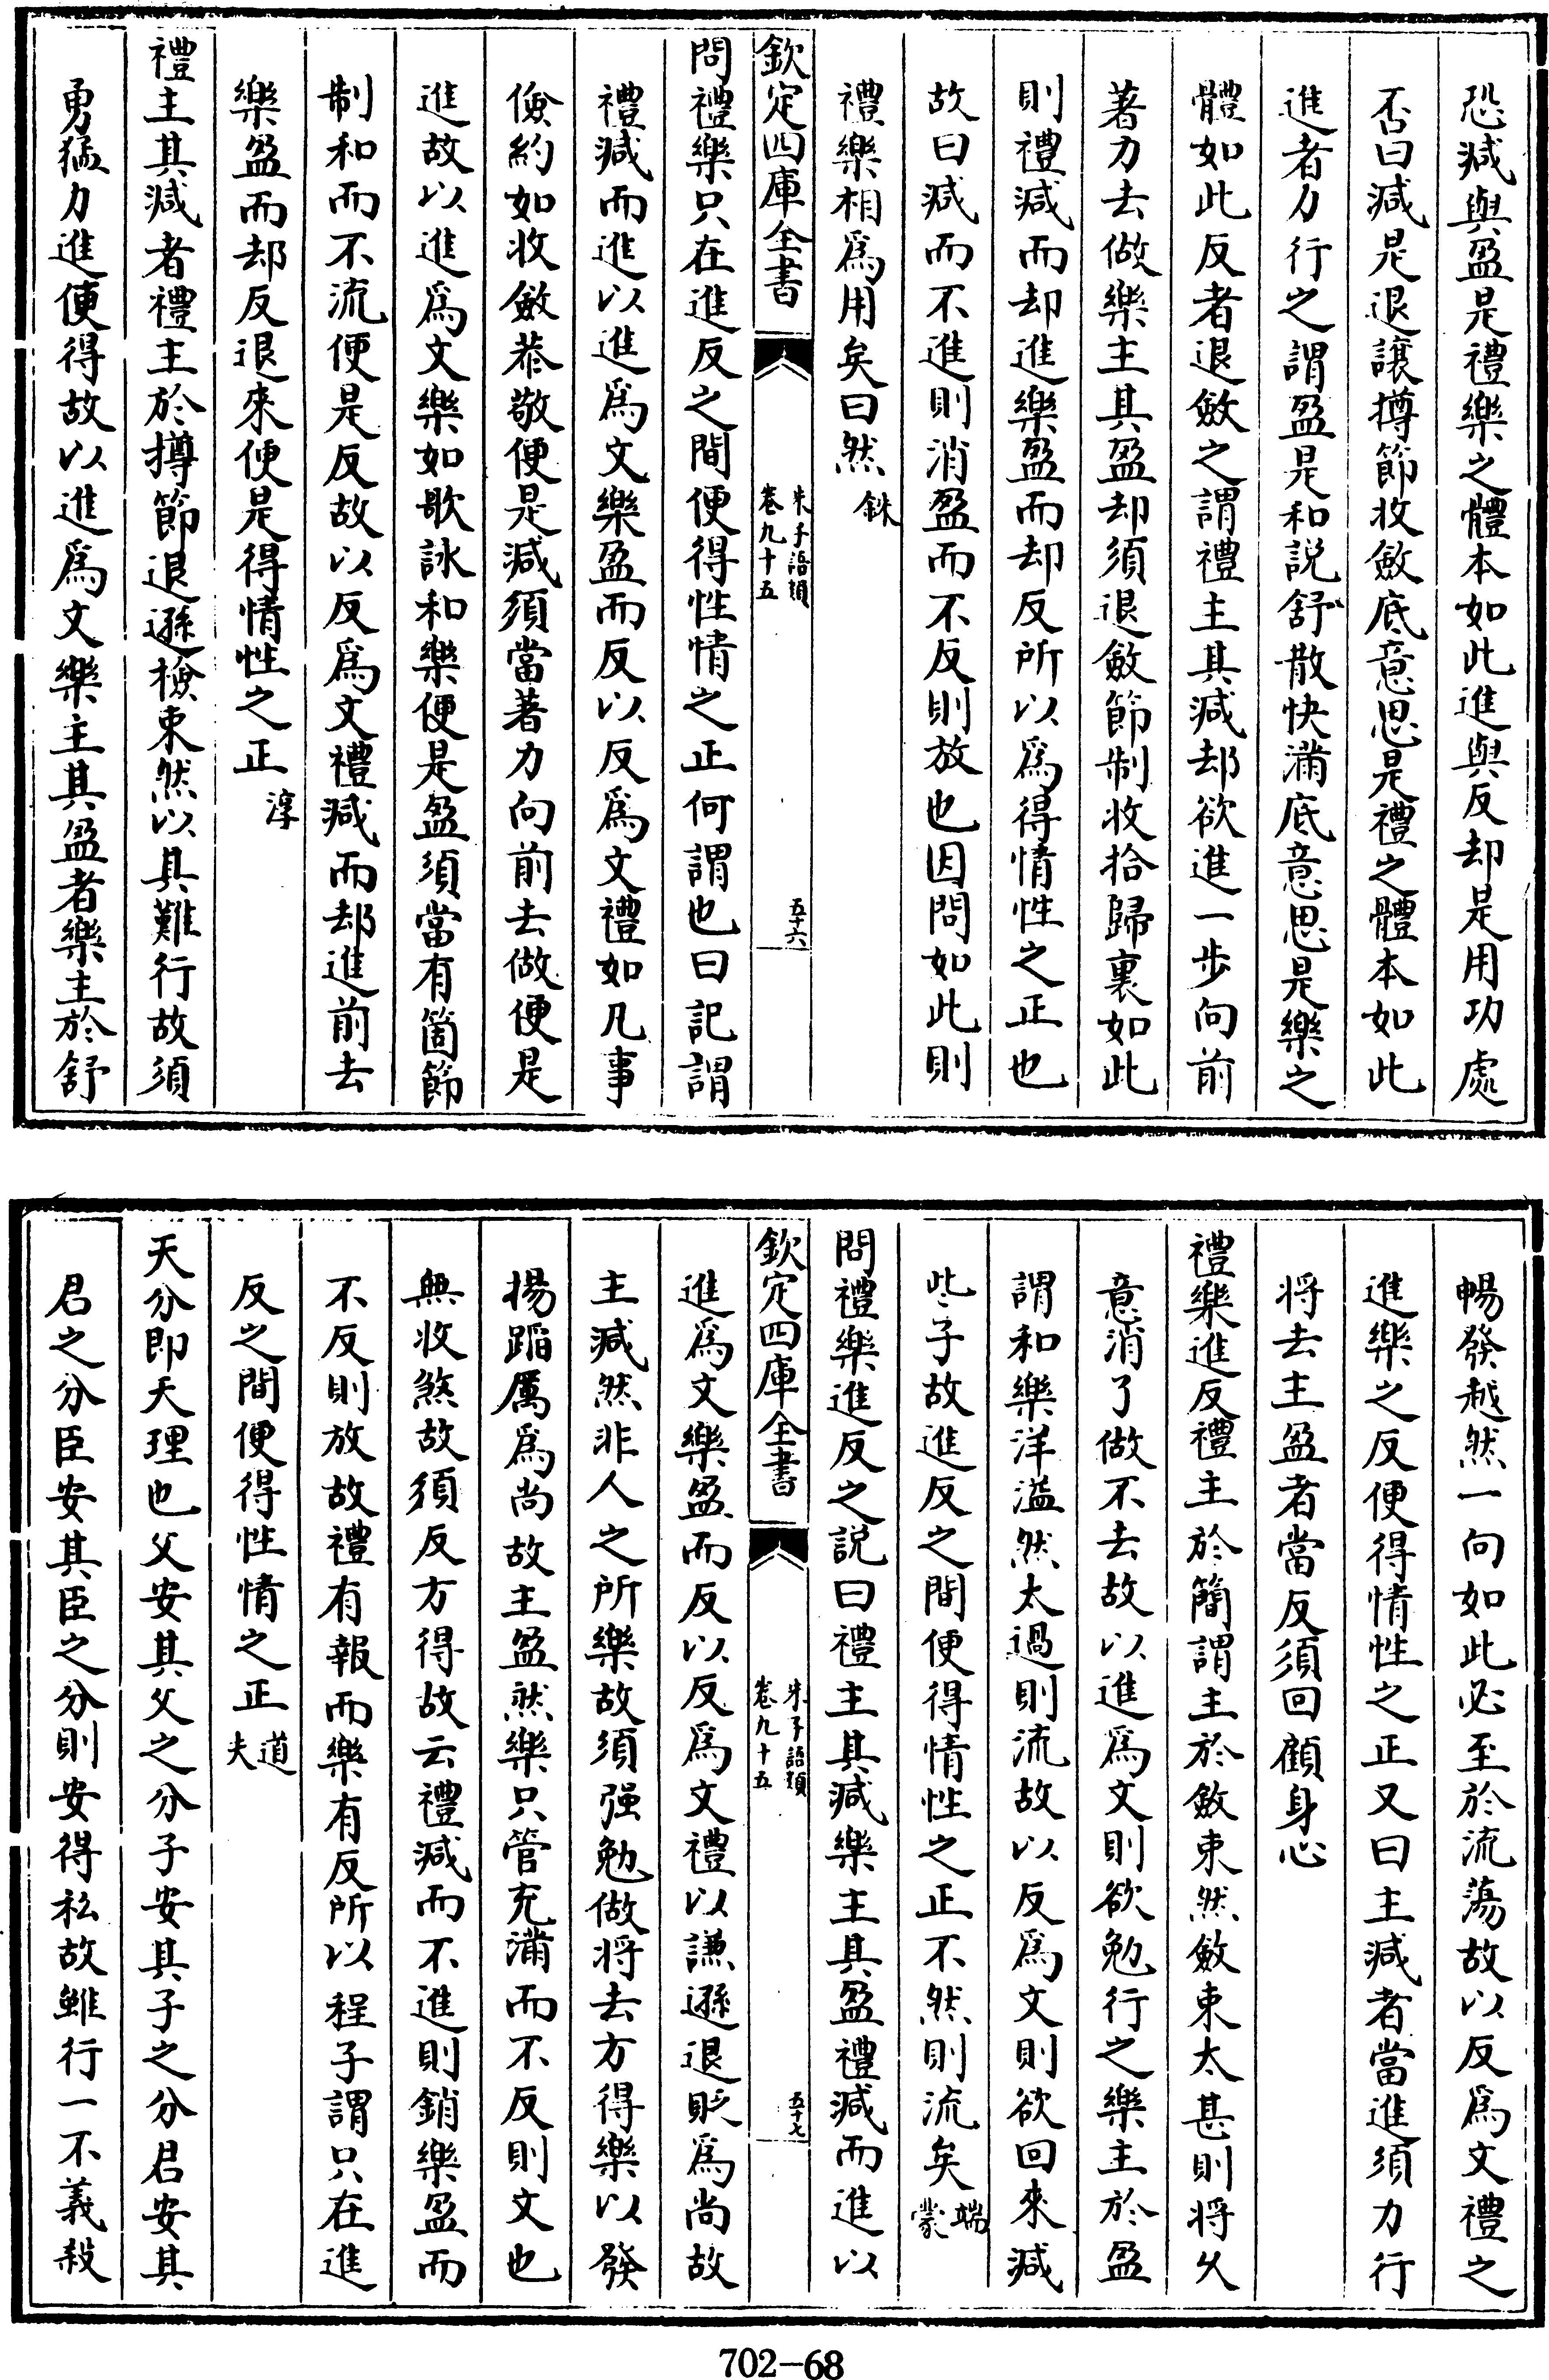 恐減與盈是禮樂之體本如此進與反却是用功處
否曰減是退讓撙節收斂底意思是禮之體本如此
進者力行之謂盈是和説舒散快滿底意思是樂之
體如此反者退斂之謂禮主其減却欲進一步向前
著力去做樂主其盈却須退斂節制收拾歸裏如此
則禮減而却進樂盈而却反所以爲得情性之正也
故曰減而不進則消盈而不反則放也因問如此則
禮樂相爲用矣曰然銖
欽定四庫全書
朱子語類
卷九十五
五十六
問禮樂只在進反之間便得性情之正何謂也曰記謂
禮減而進以進爲文樂盈而反以反爲文禮如凡事
儉約如收斂恭敬便是減須當著力向前去做便是
進故以進爲文樂如歌詠和樂便是盈須當有箇節
制和而不流便是反故以反爲文禮減而却進前去
樂盈而却反退來便是得情性之正淳
禮主其減者禮主於撙節退遜檢束然以其難行故須
勇猛力進便得故以進爲文樂主其盈者樂主於舒
暢發越然一向如此必至於流蕩故以反爲文禮之
進樂之反便得情性之正又曰主減者當進須力行
將去主盈者當反須回顧身心
禮樂進反禮主於簡謂主於斂束然斂束太甚則將久
意消了做不去故以進爲文則欲勉行之樂主於盈
謂和樂洋溢然太過則流故以反爲文則欲回來減
些子故進反之間便得情性之正不然則流矣端蒙
問禮樂進反之説曰禮主其減樂主其盈禮減而進以
欽定四庫全書
朱子語類
卷九十五
五十七
進爲文樂盈而反以反爲文禮以謙遜退貶爲尚故
主減然非人之所樂故須强勉做將去方得樂以發
揚蹈厲爲尚故主盈然樂只管充滿而不反則文也
無收煞故須反方得故云禮減而不進則銷樂盈而
不反則放故禮有報而樂有反所以程子謂只在進
反之間便得性情之正道夫
天分即天理也父安其父之分子安其子之分君安其
君之分臣安其臣之分則安得私故雖行一不義殺
702-68